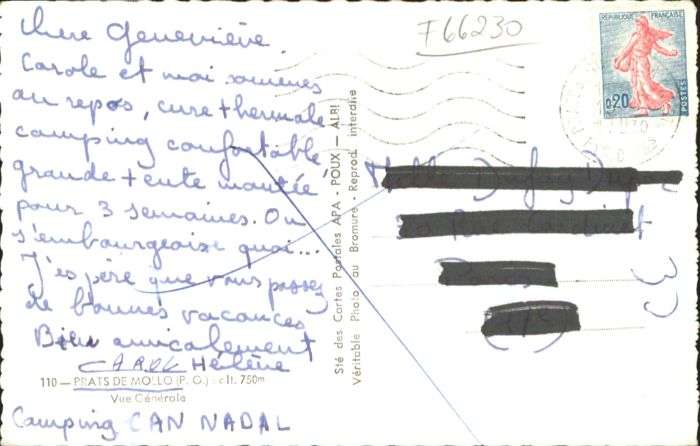 Chere Geneviève.
Carole et moi sommes
au repos, cure thermale
camping confortable
grande tente montée
pour 3 semaines. On
s'embourgeoise quoi...
J'espère que vous passez
de bonnes vacances
Bien amicalement
CAROLE Hélène
110 — PRATS DE MOLLO (P. O.) : alt. 750m
Vue Générale
Camping CAN NADAL
Sté des Cartes Postales APA - POUX — ALBI
Véritable Photo au Bromure - Reprod. interdite
F66230
RÉPUBLIQUE FRANÇAISE
0,20
POSTES